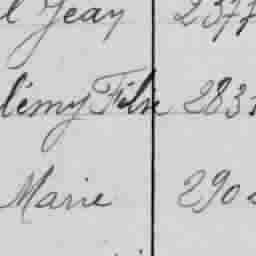 l Jeay 2377
lémy Félix 2831
Marie 290